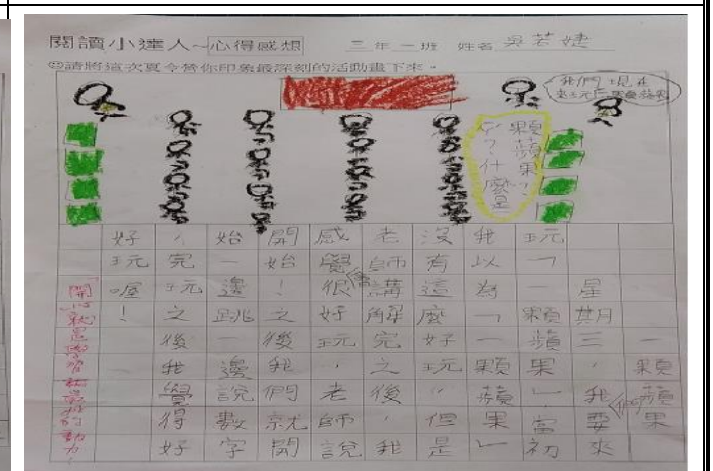 閱讀小達人~心得感想 三年一班 姓名 吳若婕
☺請將這次夏令營你印象最深刻的活動畫下來。
我們現在
來玩一顆蘋果
顆蘋果?
?什麼是
一顆蘋果
星期三，我們要來
玩「一顆蘋果」當初
我以為「一顆蘋果」
沒有這麼好玩，但是
老師講解完之後，我
感覺很會好玩，老師說
開始！之後我們就開
始一邊跳一邊說數字
，完玩之後我覺得好
好玩喔！
開心就是學習 的動力!